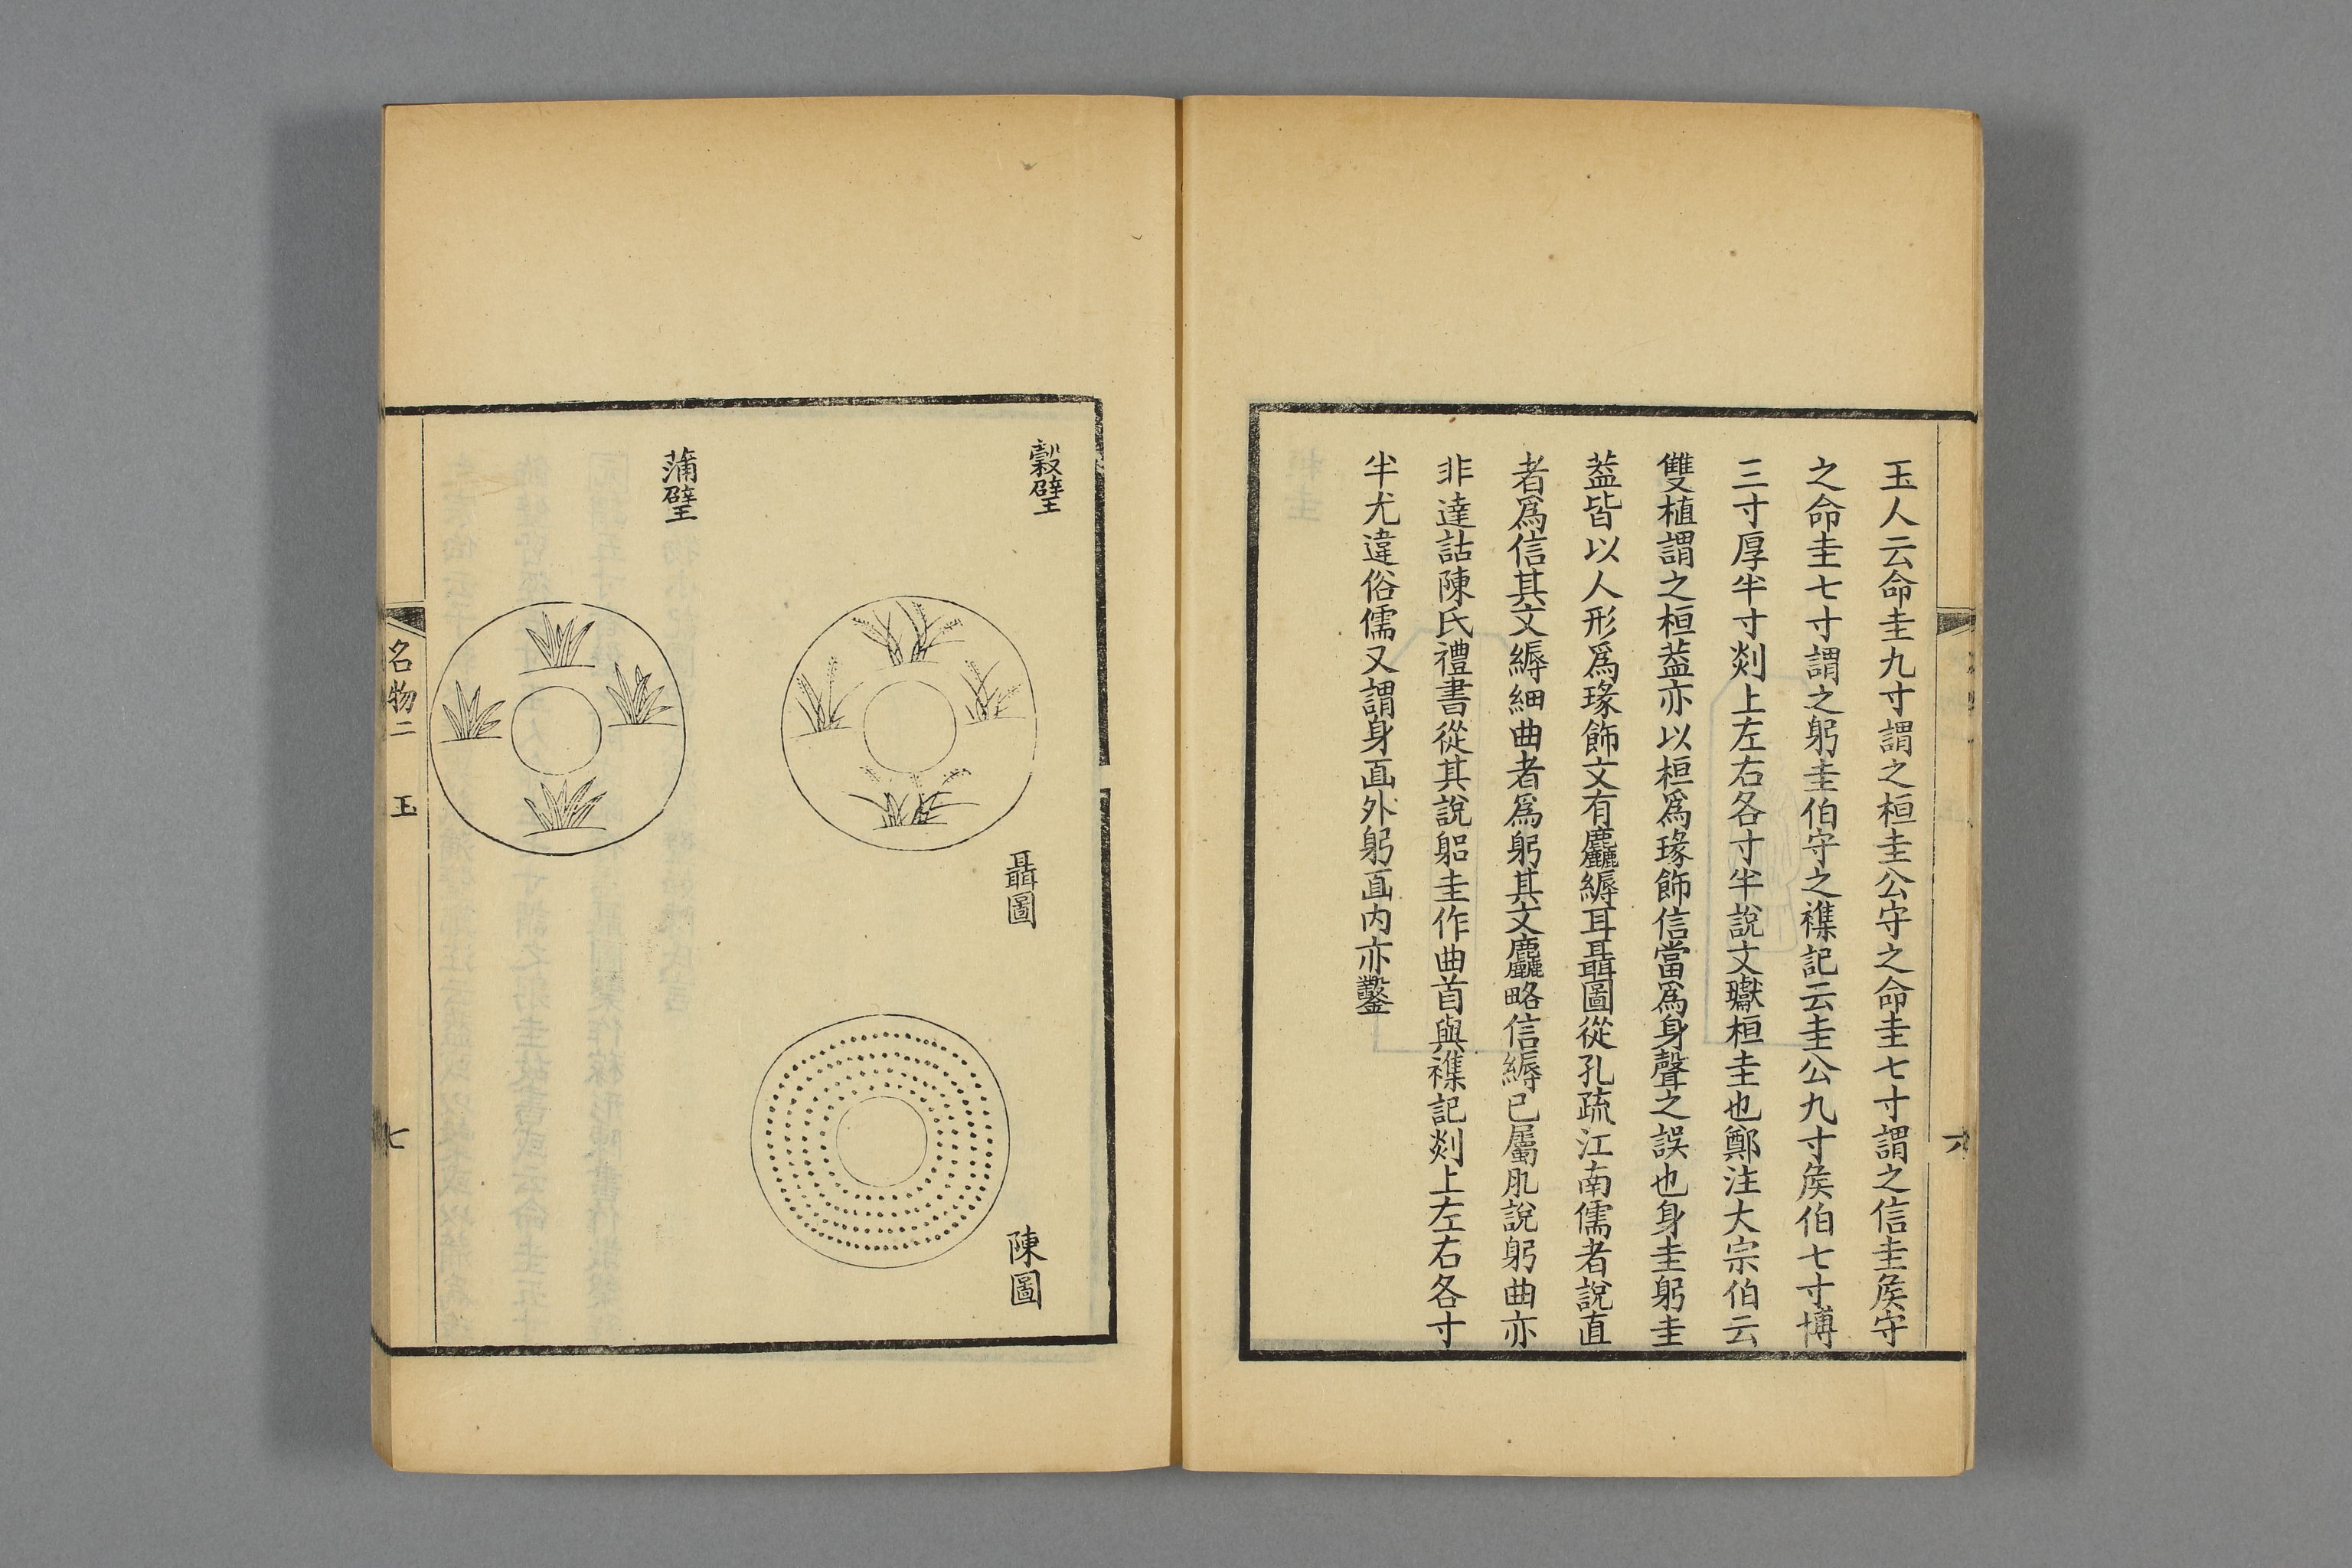 玉人云命圭九寸謂之桓圭公守之命圭七寸謂之信圭矦守
之命圭七寸謂之躬圭伯守之襍記云圭公九寸矦伯七寸博
三寸厚半寸剡上左右各寸半說文瓛桓圭也鄭注大宗伯云
雙植謂之桓葢亦以桓爲瑑飾信當爲身聲之誤也身圭躬圭
葢皆以人形爲瑑飾文有麤縟耳聶圖從孔疏江南儒者說直
者爲信其文縟細曲者爲躬其文麤略信縟已屬肊說躬曲亦
非達詁陳氏禮書從其說躳圭作曲首與襍記剡上左右各寸
半尤違俗儒又謂身面外躬面内亦鑿
六
穀璧
聶圖
陳圖
蒲璧
名物二
玉
七